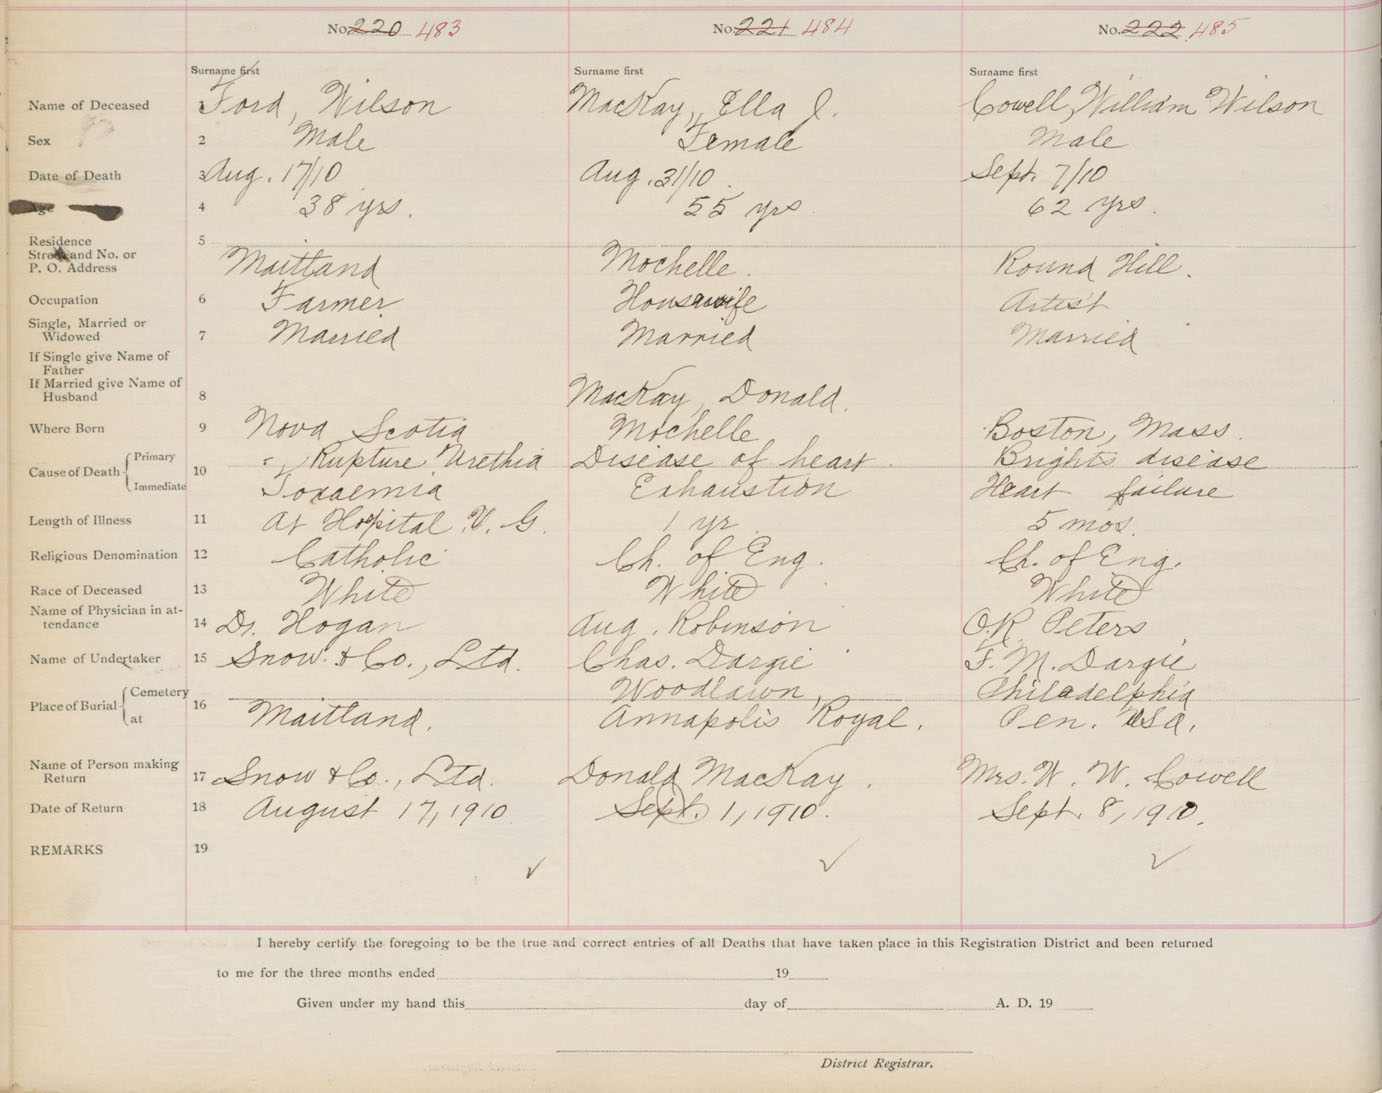 No. 220 483 No. 221 484 No. 222 485
Surname first Surname first Surname first
Name of Deceased 1 Ford, Wilson MacKay, Ella J. Cowell, William Wilson
Sex 2 Male Female Male
Date of Death 3 Aug. 17/10 Aug. 31/10. Sept. 7/10
Age 4 38 yrs. 55 yrs 62 yrs.
Residence 5
Street and No. or
P. O. Address Maitland Mochelle. Round Hill.
Occupation 6 Farmer Housewife Artist
Single, Married or
Widowed 7 Married Married Married
If Single give Name of
Father
If Married give Name of
Husband 8 MacKay, Donald.
Where Born 9 Nova Scotia Mochelle Boston, Mass.
Cause of Death Primary Rupture Urethia Disease of heart. Brights disease
10
Immediate Toxaemia Exhaustion Heart failure
Length of Illness 11 At Hospital V. G. 1 yr. 5 mos.
Religious Denomination 12 Catholic Ch. of Eng. Ch. of Eng.
Race of Deceased 13 White White White
Name of Physician in at-
tendance 14 Dr. Hogan Aug. Robinson O.R. Peters
Name of Undertaker 15 Snow & Co., Ltd. Chas. Dargie F. M. Dargie
Place of Burial Cemetery Woodlawn, Philadelphia
16
at Maitland. Annapolis Royal. Pen. USA.
Name of Person making
Return 17 Snow & Co., Ltd. Donald MacKay. Mrs. W. W. Cowell
Date of Return 18 August 17, 1910 Sept. 1, 1910. Sept. 8, 1910.
REMARKS 19
I hereby certify the foregoing to be the true and correct entries of all Deaths that have taken place in this Registration District and been returned
to me for the three months ended 19
Given under my hand this day of A. D. 19
District Registrar.